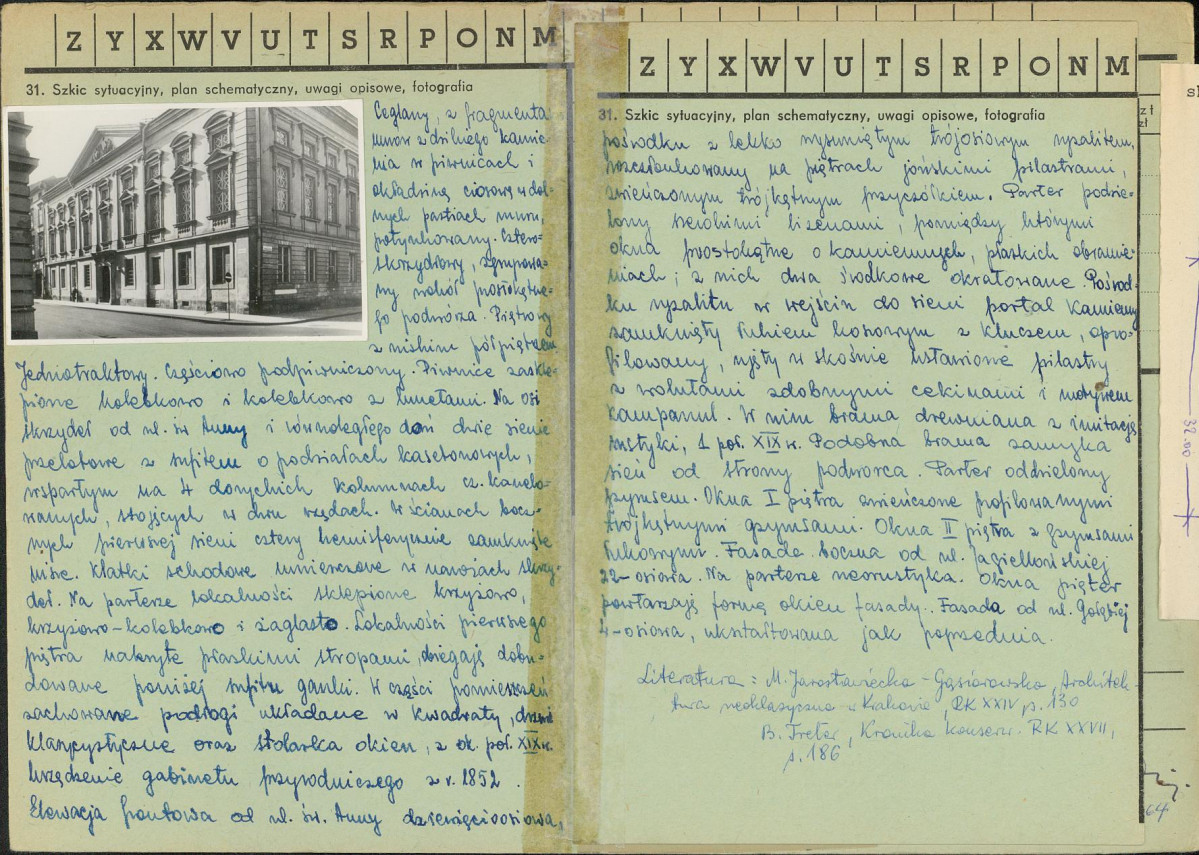 Z Y X W V U T S R P O N M
31. Szkic sytuacyjny, plan schematyczny, uwagi opisowe, fotografia
Ceglany, z fragmentami
murów z dzikiego kamie-
nia w piwnicach i
okładziną ciosową w dol-
nych partiach muru,
potynkowany. Cztero-
skrzydłowy, zgrupowa-
ny wokół prostokątne-
go podwórza. Piętrowy
z niskim półpiętrem.
Jednotraktowy. Częściowo podpiwniczony. Piwnice zaskle-
pione kolebkowo i kolebkowo z lunetami. Na osi
skrzydeł od ul. św Anny i równoległego doń dwie sienie
przelotowe z sufitem o podziałach kasetonowych,
wspartym na 4 doryckich kolumnach cz. kanelo-
wanych, stojących w dwu rzędach. W ścianach bocz-
nych pierwszej sieni cztery hemisferycznie zamknięte
nisze. Klatki schodowe umieszczone w narożach skrzy-
deł. Na parterze lokalności sklepione krzyżowo,
krzyżowo-kolebkowo i żaglasto. Lokalności pierwszego
piętra nakryte płaskimi stropami, obiegają dobu-
dowane poniżej sufitu ganki. W części pomieszczeń
zachowane podłogi układane w kwadraty, drzwi
klasycystyczne oraz stolarka okien, z ok. poł. XIX w.
Urządzenie gabinetu przyrodniczego z r. 1852.
Elewacja frontowa od ul. św. Anny dziewięcioosiowa,
Z Y X W V U T S R P O N M
31. Szkic sytuacyjny, plan schematyczny, uwagi opisowe, fotografia
pośrodku z lekko wysuniętym trójosiowym ryzalitem,
rozczłonkowany na piętrach jońskimi pilastrami,
zwieńczonym trójkątnym przyczółkiem. Parter podzie-
lony szerokimi lizenami, pomiędzy którymi
okna prostokątne o kamiennych, płaskich obramie-
niach; z nich dwa środkowe okratowane. Pośrod-
ku ryzalitu w wejściu do sieni portal kamienny
zamknięty łukiem koszowym z kluczem, opro-
filowany, ujęty w skośnie ustawione pilastry
z wolutami zdobnymi cekinami i motywem
kampanul. W nim brama drewniana z imitacją
rustyki, 1 poł. XIX w. Podobna brama zamyka
sień od strony podwórca. Parter oddzielony
gzymsem. Okna I piętra zwieńczone profilowanymi
trójkątnymi gzymsami. Okna II piętra z gzymsami
łukowymi. Fasada boczna od ul. Jagiellońskiej
22-osiowa. Na parterze neorustyka. Okna pięter
powtarzają formę okien fasady. Fasada od ul. Gołębiej
4-osiowa, ukształtowana jak poprzednia.
Literatura: M. Jarosławiecka-Gąsiorowska, Architek-
tura neoklasyczna w Krakowie, RK XXIV, s. 130
B. Treter, Kronika konserw. RK XXVII,
s. 186
zł
zł
64